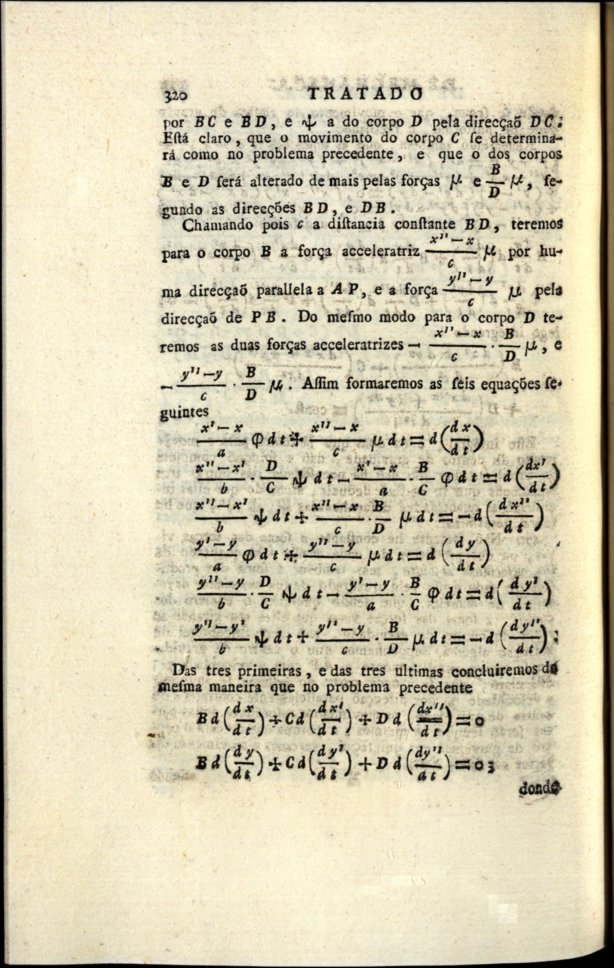 320 TRATADO
por BC e BD, e ψ a do corpo D pela direcçaõ DC:
Eſtá claro, que o movimento do corpo C ſe determina-
rá como no problema precedente, e que o dos corpos
B e D ſerá alterado de mais pelas forças μ e B/D μ, ſe-
gundo as direcções BD, e DB.
Chamando pois c a diſtancia conſtante BD, teremos
para o corpo B a força acceleratriz (x''−x)/c μ por hu-
ma direcçaõ parallela a AP, e a força (y''−y)/c μ pela
direcçaõ de PB. Do meſmo modo para o corpo D te-
remos as duas forças acceleratrizes − (x''−x)/c · B/D μ, e
− (y''−y)/c · B/D μ. Aſſim formaremos as ſeis equações ſe-
guintes
(x'−x)/a φdt + (x''−x)/c μdt = d(dx/dt)
(x''−x')/b · D/C ψdt − (x'−x)/a · B/C φdt = d(dx'/dt)
(x''−x')/b ψdt + (x''−x)/c · B/D μdt = −d(dx''/dt)
(y'−y)/a φdt + (y''−y)/c μdt = d(dy/dt)
(y''−y)/b · D/C ψdt − (y'−y)/a · B/C φdt = d(dy'/dt)
(y''−y')/b ψdt + (y''−y)/c · B/D μdt = −d(dy''/dt);
Das tres primeiras, e das tres ultimas concluiremos da
meſma maneira que no problema precedente
Bd(dx/dt) + Cd(dx'/dt) + Dd(dx''/dt) = 0
Bd(dy/dt) + Cd(dy'/dt) + Dd(dy''/dt) = 0;
donde